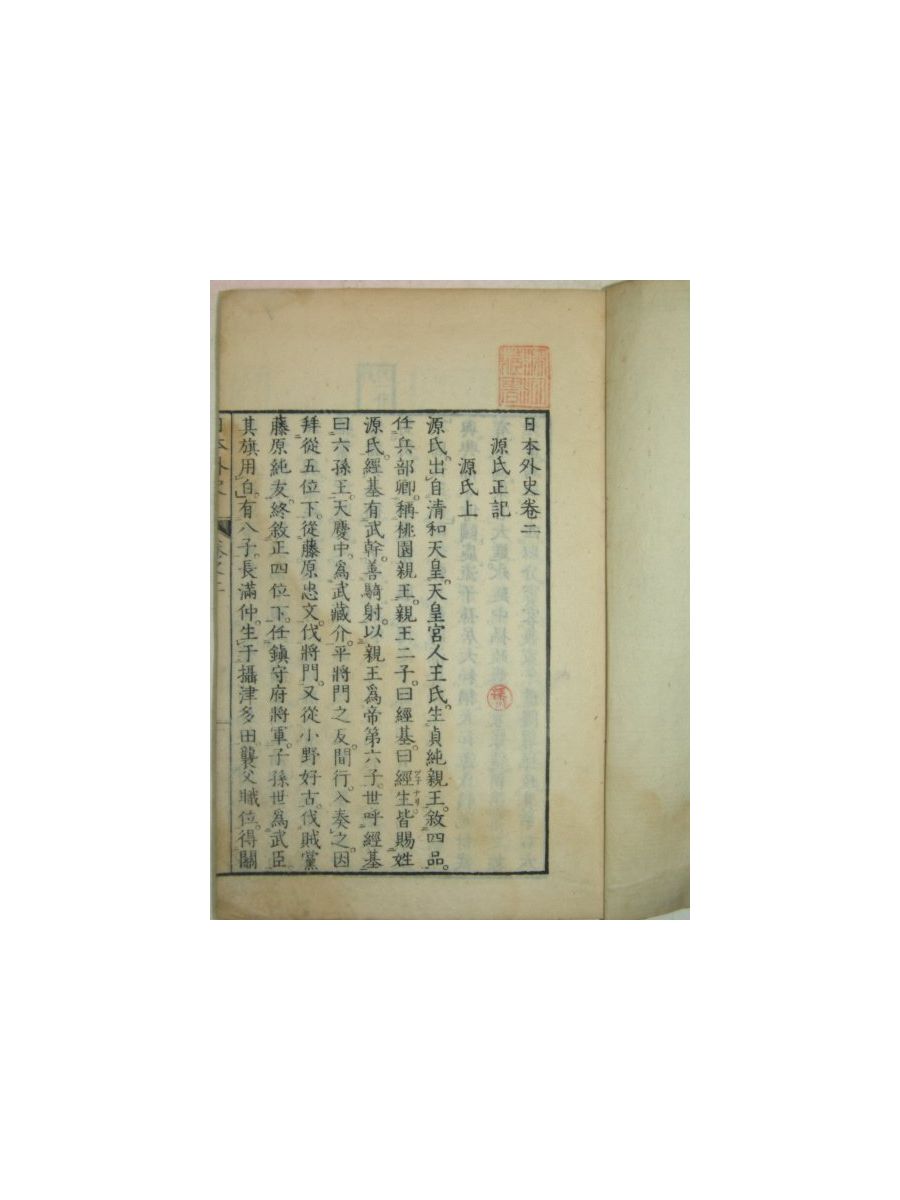 日本外史卷二
源氏正記
源氏上
源氏。出自清和天皇。天皇宮人王氏。生貞純親王。敘四品。
任兵部卿。稱桃園親王。親王二子。曰經基。曰經生。皆賜姓
源氏。經基有武幹。善騎射。以親王爲帝第六子。世呼經基
曰六孫王。天慶中。爲武藏介。平將門之反。間行入奏之。因
拜從五位下。從藤原忠文。伐將門。又從小野好古。伐賊黨
藤原純友。終敘正四位下。任鎮守府將軍。子孫世爲武臣。
其旗用白。有八子。長滿仲。生于攝津多田。襲父職位。得關
日本外史